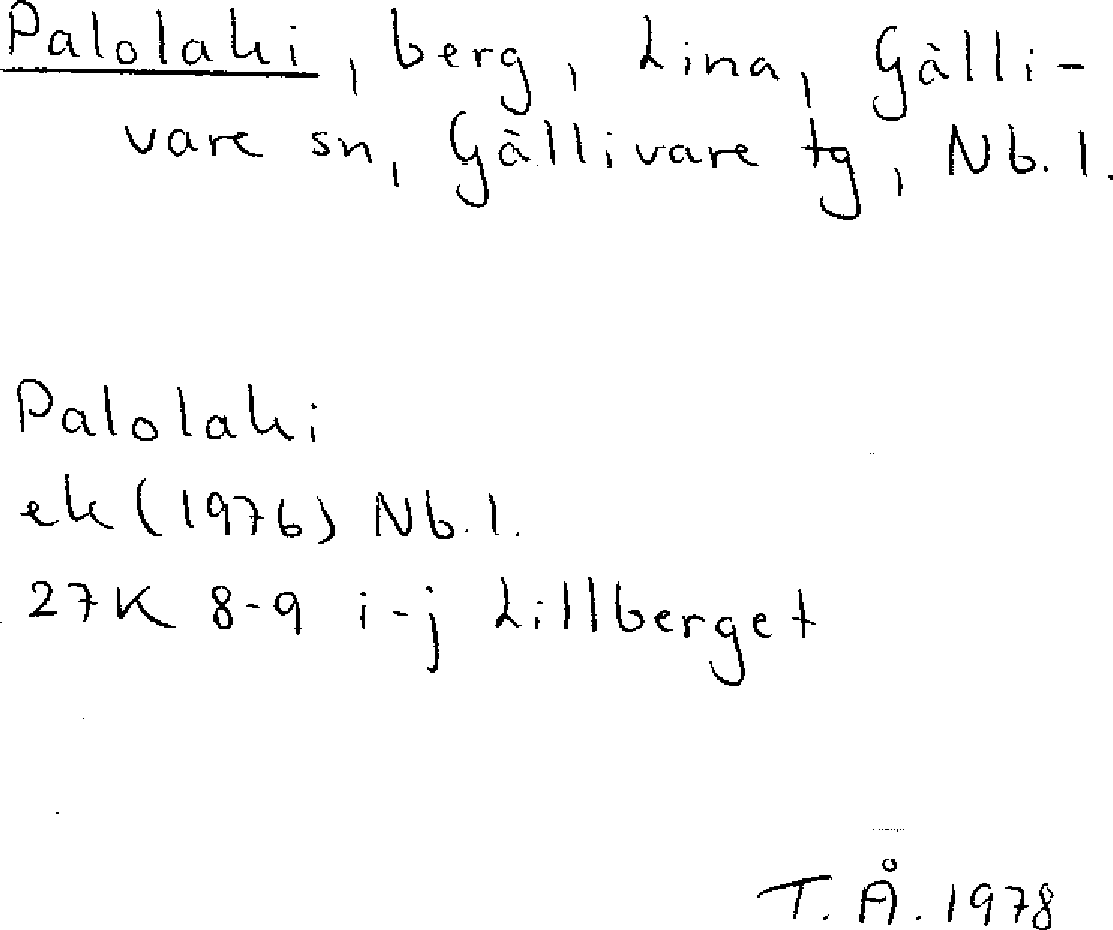 Palolaki, berg, Lina, Gälli-
vare sn, Gällivare tg, Nb. l.
Palolaki
ek (1976) Nb. l.
27K 8-9 i-j Lillberget
T. Å. 1978